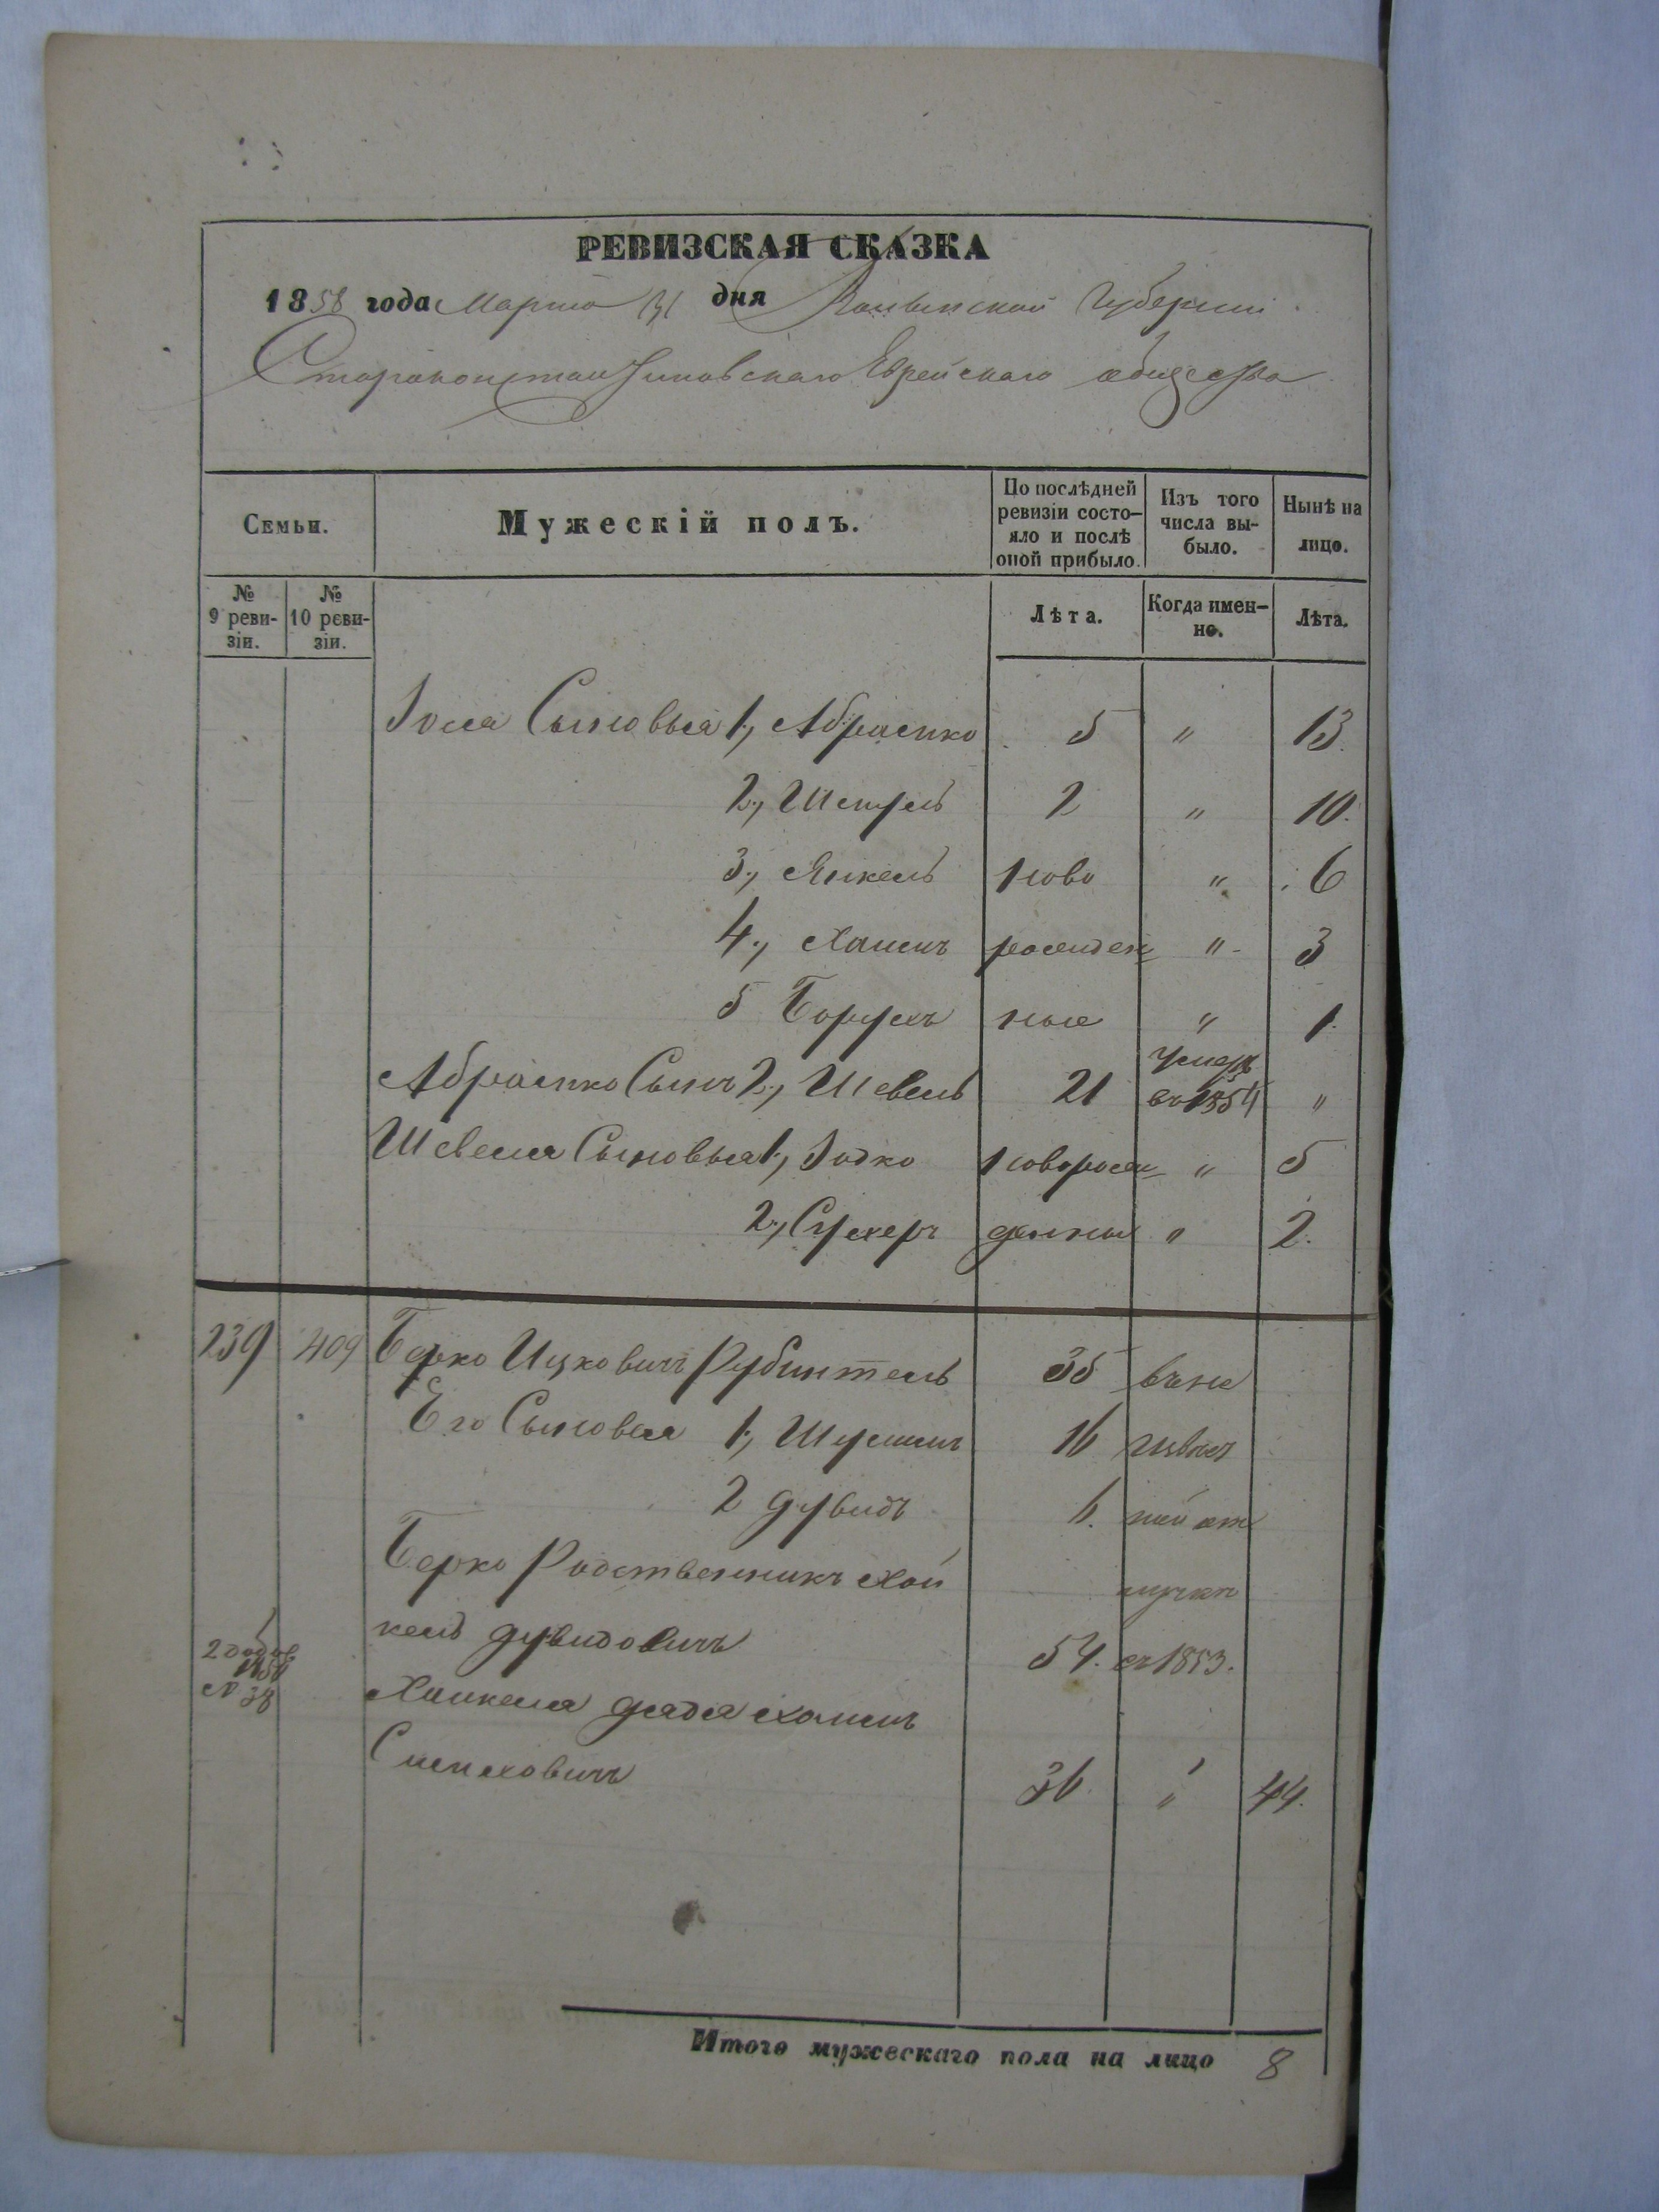 РЕВИЗСКАЯ СКАЗКА
1858 года Марта 31 дня Волынской Губерніи
Староконстантиновскаго Еврейскаго общества
Семьи.
Мужескій полъ.
По послѣдней ревизіи состо-
яло и послѣ оной прибыло.
Изъ того числа вы-
было.
Нынѣ на лицо.
№ 9 реви-
зіи.
№ 10 реви-
зіи.
Лѣта.
Когда имен-
но.
Лѣта.
Іося Сыновья 1, Абрамко 5 " 13.
2, 2 " 10.
3, Янкель ново " 6
4, Хаимъ рожден " 3
5 Борухъ ные " 1.
Умеръ
Абрамко Сынъ 2, Шевель 21 въ 1854 "
Шевеля Сыновья 1, новорож " 5
2, Сухеръ денные " 2.
239 409 Берко Ицковичъ Рубинтель 35 въ не
Его Сыновья 1, 16 извѣст
2 Дувидъ 6. ной от
Берко Родственникъ Хай лучкѣ
кель Дувидовичъ 54. съ 1853.
2 додов
№ 38
Хаикеля дядя Хаимъ
36. " 44.
Итого мужескаго пола на лицо 8